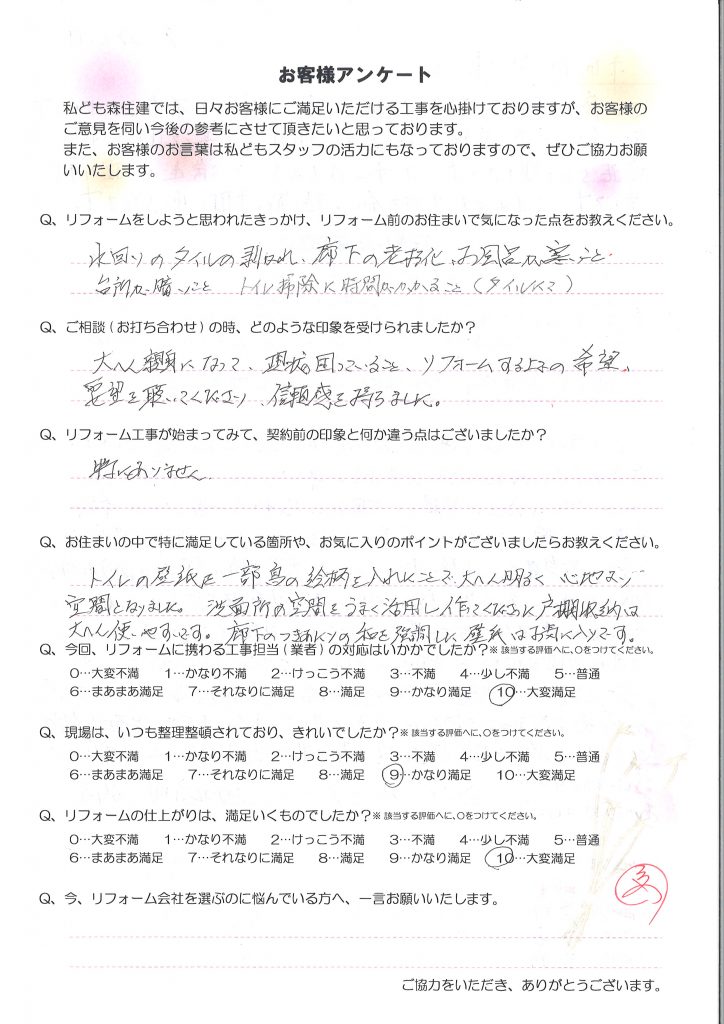 お客様アンケート
私ども森住建では、日々お客様にご満足いただける工事を心掛けておりますが、お客様の
ご意見を伺い今後の参考にさせて頂きたいと思っております。
また、お客様のお言葉は私どもスタッフの活力にもなっておりますので、ぜひご協力お願
いいたします。
Q、リフォームをしようと思われたきっかけ、リフォーム前のお住まいで気になった点をお教えください。
水回りのタイルの剥がれ、廊下の老朽化、お風呂が寒いこと
台所が暗いこと トイレ掃除に時間がかかること(タイルにて)
Q、ご相談(お打ち合わせ)の時、どのような印象を受けられましたか?
大へん親身になって、困っていること、リフォームする上での希望、
要望を聴いてくださり、信頼感を得ました。
Q、リフォーム工事が始まってみて、契約前の印象と何か違う点はございましたか?
特にありません。
Q、お住まいの中で特に満足している箇所や、お気に入りのポイントがございましたらお教えください。
トイレの壁紙に一部鳥の絵柄を入れたことで大へん明るく 心地よい
空間となりました。洗面所の空間をうまく活用し作ってくださった戸棚収納は
大へん使いやすいです。廊下のつきあたりの和を強調した壁紙はお気に入りです。
Q、今回、リフォームに携わる工事担当(業者)の対応はいかがでしたか?※該当する評価へに、〇をつけてください。
0…大変不満 1…かなり不満 2…けっこう不満 3…不満 4…少し不満 5…普通
6…まあまあ満足 7…それなりに満足 8…満足 9…かなり満足 10…大変満足
Q、現場は、いつも整理整頓されており、きれいでしたか?※該当する評価へに、〇をつけてください。
0…大変不満 1…かなり不満 2…けっこう不満 3…不満 4…少し不満 5…普通
6…まあまあ満足 7…それなりに満足 8…満足 9…かなり満足 10…大変満足
Q、リフォームの仕上がりは、満足いくものでしたか?※該当する評価へに、〇をつけてください。
0…大変不満 1…かなり不満 2…けっこう不満 3…不満 4…少し不満 5…普通
6…まあまあ満足 7…それなりに満足 8…満足 9…かなり満足 10…大変満足
Q、今、リフォーム会社を選ぶのに悩んでいる方へ、一言お願いいたします。
ご協力をいただき、ありがとうございます。